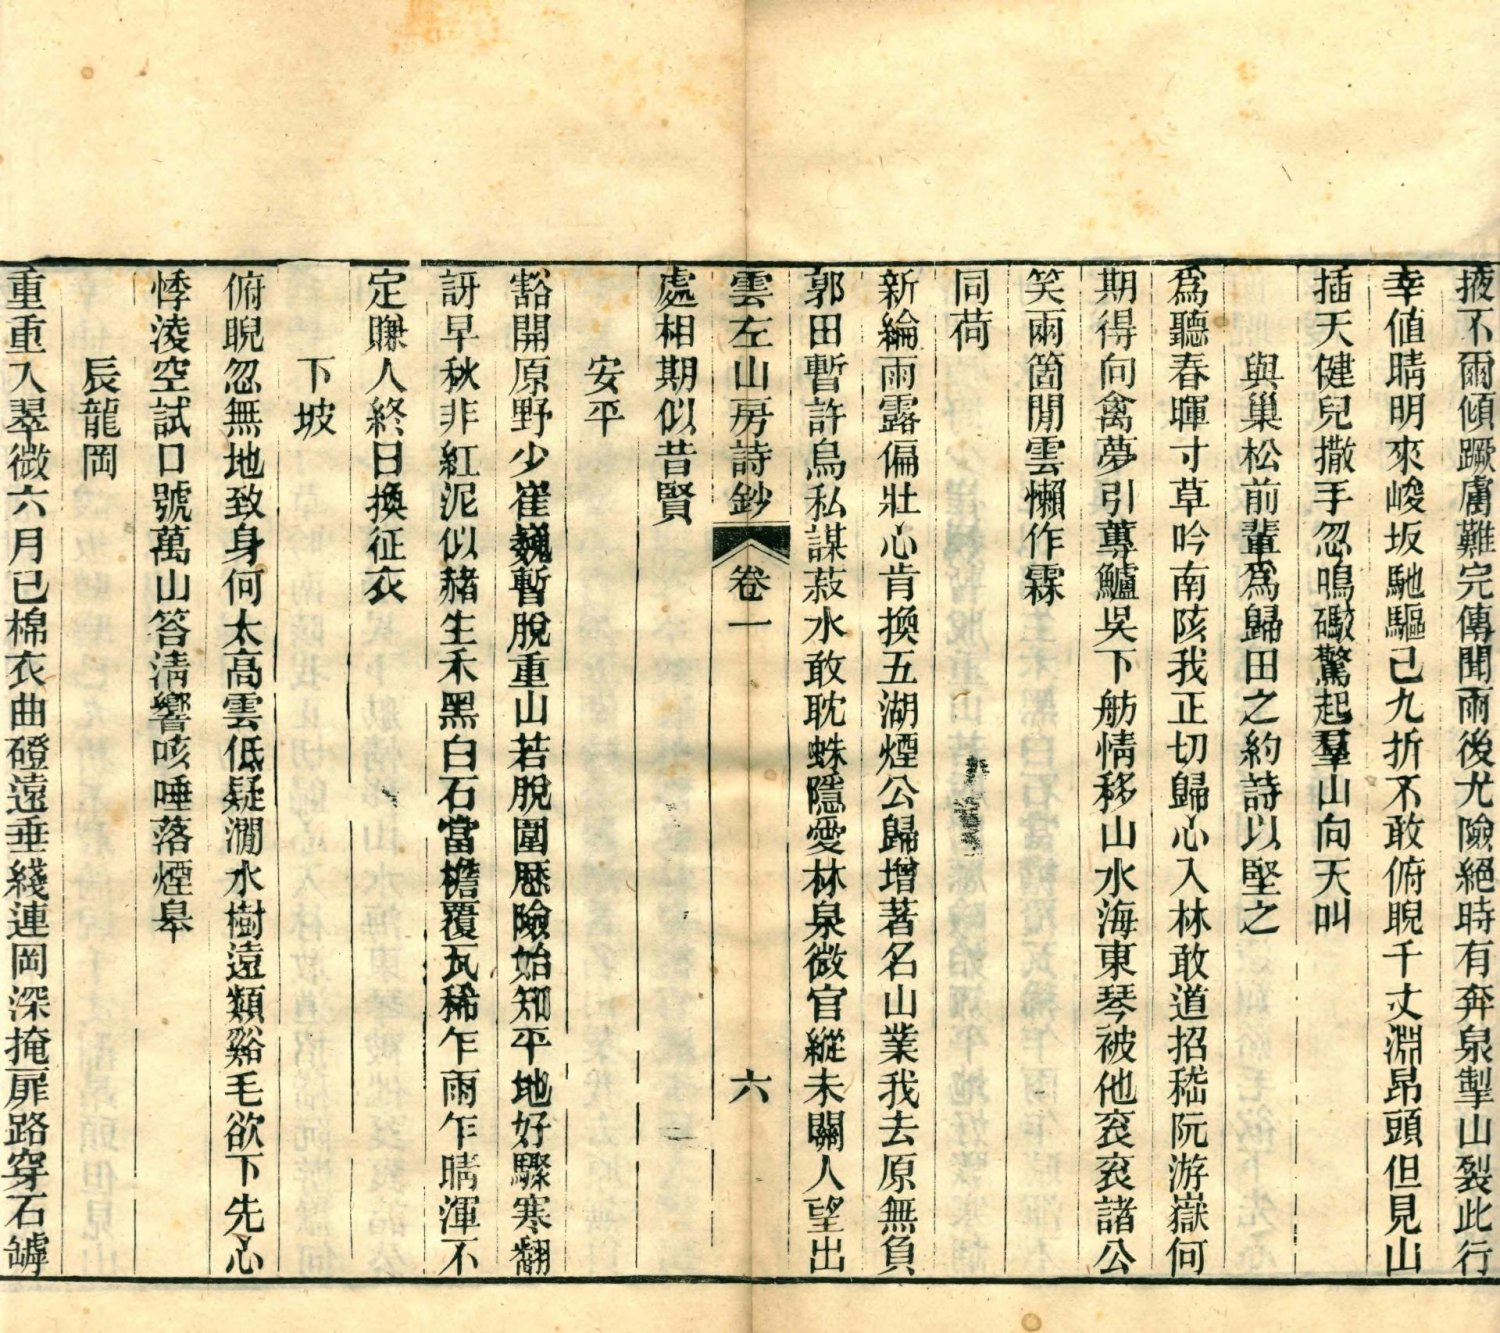 掖不爾傾蹶虜難完傳聞雨後尤險絕時有奔泉掣山裂此行
幸值晴明來峻坂馳驅已九折不敢俯睨千丈淵昂頭但見山
插天健兒撒手忽鳴礮驚起羣山向天叫
與巢松前輩爲歸田之約詩以堅之
爲聽春暉寸草吟南陔我正切歸心入林敢道招嵇阮游嶽何
期得向禽夢引蓴鱸吳下舫情移山水海東琴被他衮衮諸公
笑兩箇閒雲懶作霖
同荷
新綸雨露偏壯心肯換五湖煙公歸增著名山業我去原無負
郭田暫許烏私謀菽水敢耽蛛隱愛林泉微官縱未關人望出
雲左山房詩鈔 卷一 六
處相期似昔賢
安平
豁開原野少崔巍暫脫重山若脫圍歷險始知平地好驟寒翻
訝早秋非紅泥似赭生禾黑白石當檐覆瓦稀乍雨乍晴渾不
定賺人終日換征衣
下坡
俯睨忽無地致身何太高雲低疑澗水樹遠類谿毛欲下先心
悸淩空試口號萬山答清響咳唾落煙皋
辰龍岡
重重入翠微六月已棉衣曲磴遠垂綫連岡深掩扉路穿石罅